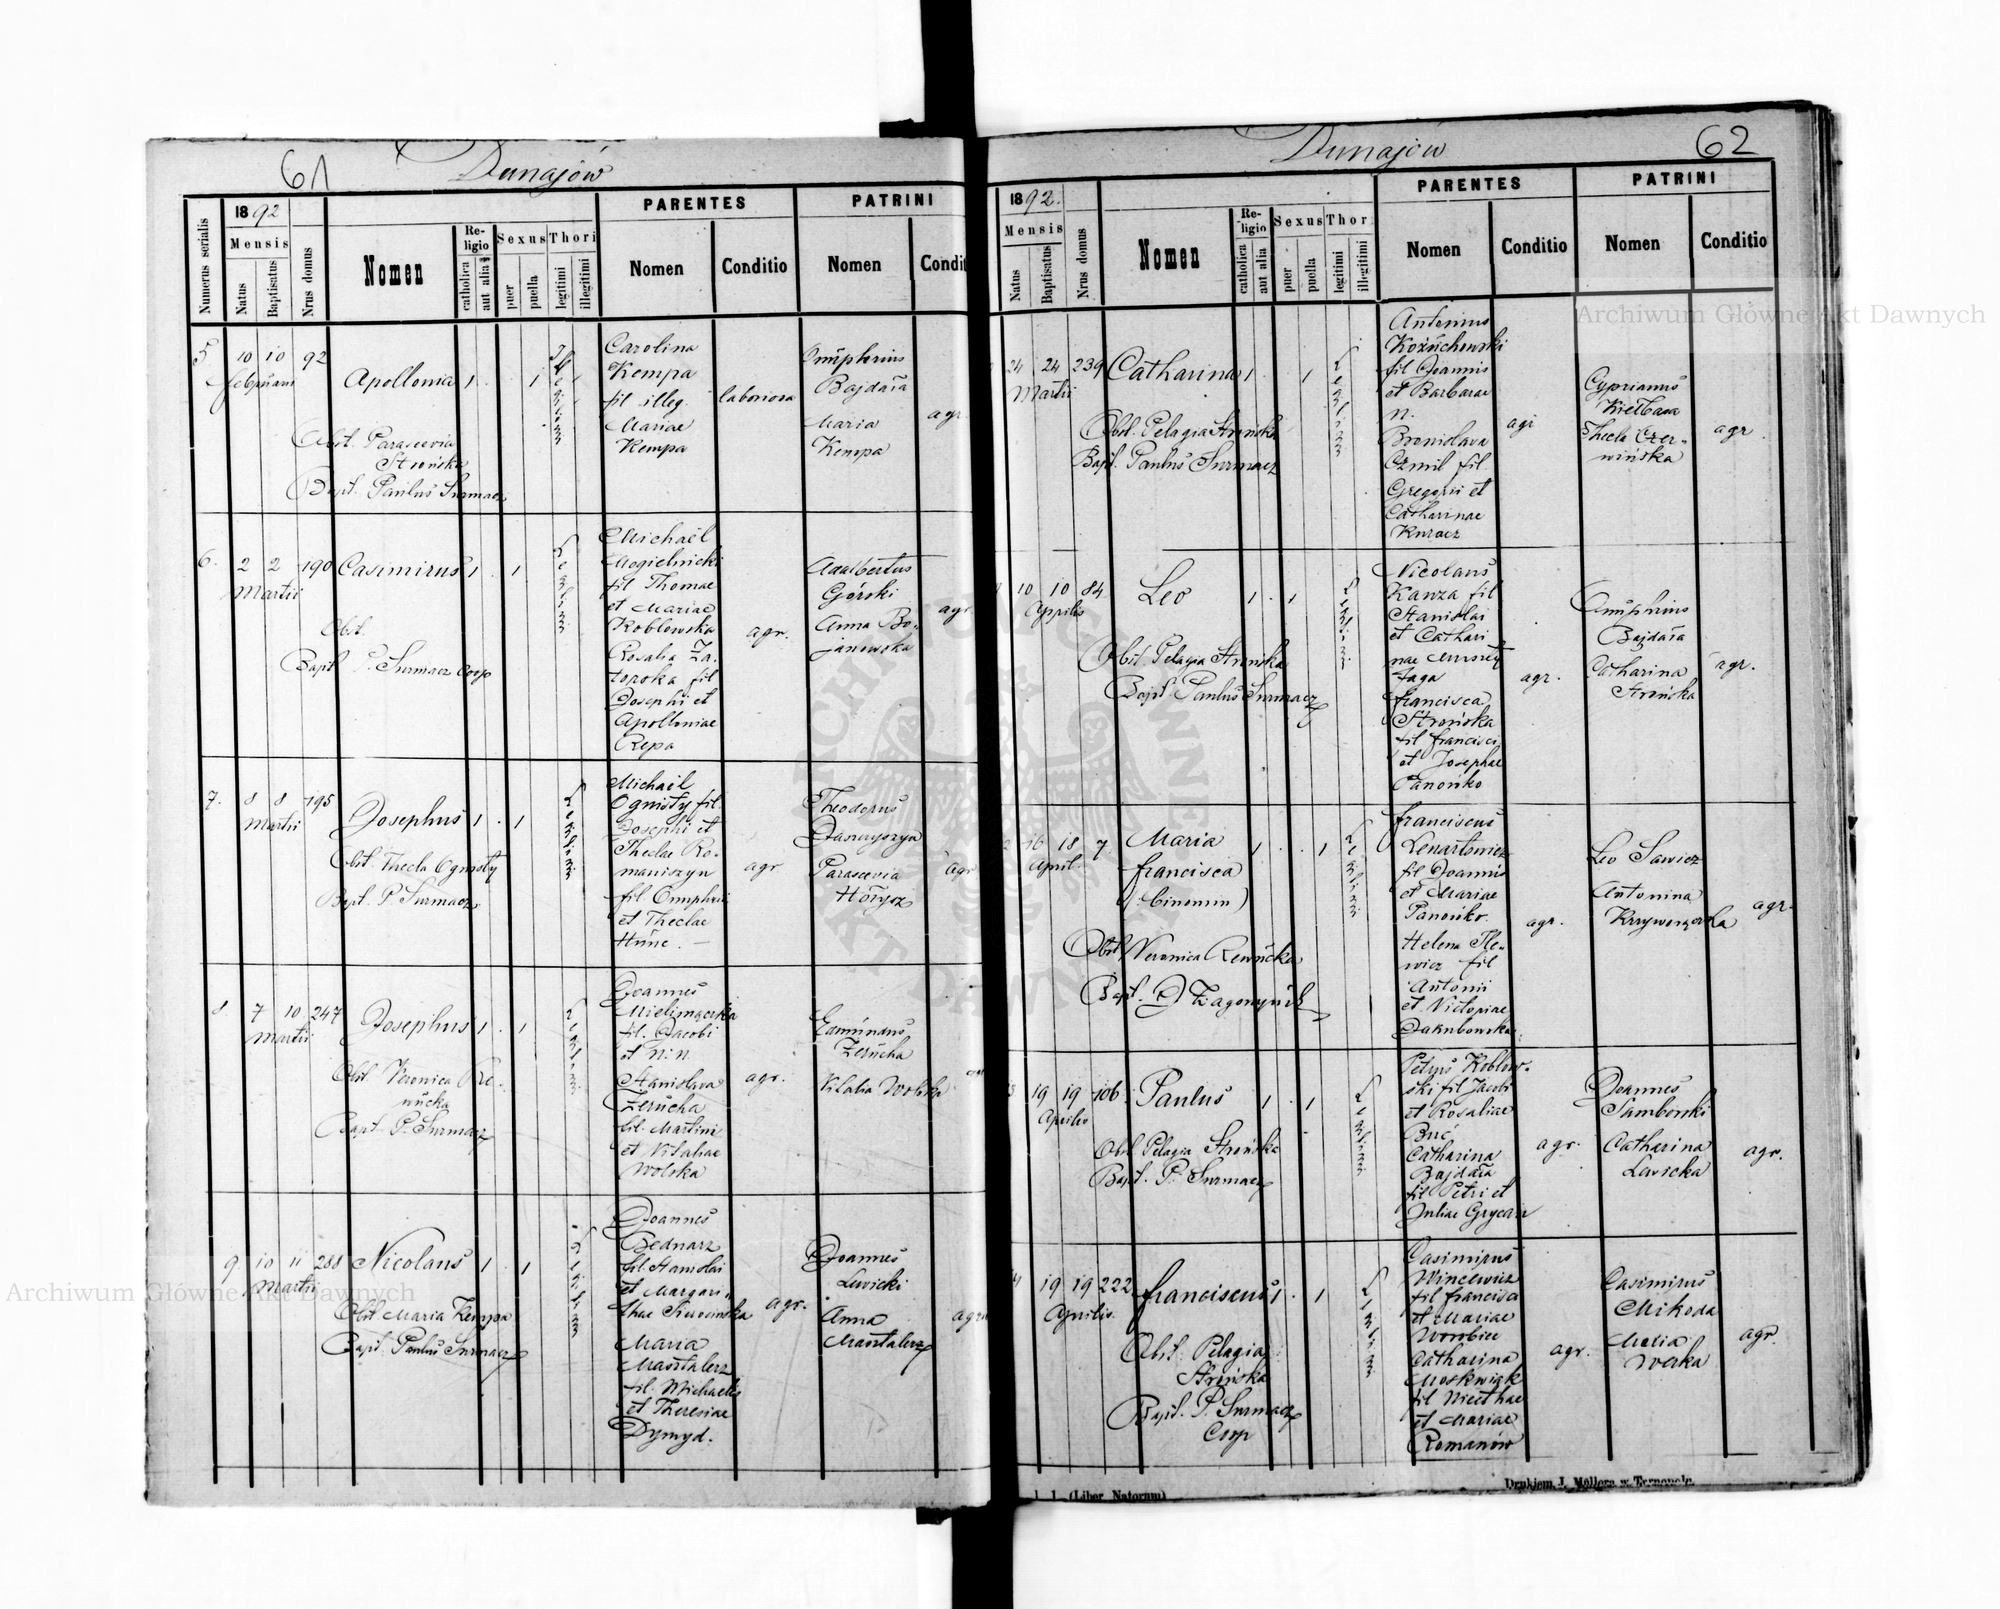 61
Dunajów
Numerus serialis
1892
Mensis
Natus
Baptisatus
Nrus domus
Nomen
Religio
catholica
aut alia
Sexus
puer
puella
Thori
legitimi
illegitimi
PARENTES
Nomen
Conditio
PATRINI
Nomen
Condit
5
10 10 92
februarii
Apollonia 1 1
Obst. Parascevia
Strońska
Bapt. Paulus Surmacz
Carolina
Kempa
fil illeg.
Mariae
Kempa
laboriosa
Onuphrius
Bajdała
Maria
Kempa
agr.
6.
2 2 190
Martii
Casimirus 1 1
Obst.
Bapt P. Surmacz Coop
Michaël
Mogielnicki
fil Thomae
et Mariae
Koblowska
Rosalia Za-
topoka fil
Josephi et
Apolloniae
Repa
agr.
Adalbertus
Górski
Anna Bo-
janowska
agr.
7.
8 8 195
Martii
Josephus 1 1
Obst. Thecla Ogonisty
Bapt. P. Surmacz
Michaël
fil.
Josephi et
Theclae Ro-
maniszyn
fil Onuphrii
et Theclae
agr
Theodorus
Parascevia
agr
8
7 10 247
Martii
Josephus 1 1
Obst. Veronica Re-
Bapt. P. Surmacz
Joannes
fil. Jacobi
et N.N.
Stanislava
Zerucha
fil Martini
et Vitaliae
Wolska
agr.
Edmundus
Zerucha
Vitalia Wolska
9
10 11 288
Martii
Nicolaus 1 1
Obst Maria Kempa
Bapt. Paulus Surmacz
Joannes
Bednarz
fil Stanislai
et Margari-
thae
Maria
Masztalerz
fil. Michaelis
et Theresiae
Dymyd.
agr.
Joannes
Lewicki
Anna
Masztalerz
agr
62
Dunajów
1892.
Mensis
Natus
Baptisatus
Nrus domus
Nomen
Religio
catholica
aut alia
Sexus
puer
puella
Thor
legitimi
illegitimi
PARENTES
Nomen
Conditio
PATRINI
Nomen
Conditio
24 24 239
Martii
Catharina 1 1
Obst. Pelagia Strońska
Bapt. Paulus Surmacz
Antonius
Kożuchowski
fil Joannis
et Barbarae
n.
Bronislava
Czmil fil
Gregorii et
Catharinae
Kuracz
agr
Cyprianus
Kiełbasa
Thecla Czer-
wińska
agr.
10 10 84
Aprilis
Leo 1 1
Obst. Pelagia Strońska
Bapt. Paulus Surmacz
Nicolaus
Kanza fil
Stanislai
et Cathari
nae
francisca
Strońska
fil francisci
et Josephae
Panońko
agr.
Onuphrius
Bajdała
Catharina
Strońska
agr.
16 18 7
April.
Maria
francisca
(binomin)
1 1
Obst Veronica
Bapt.
franciscus
Lenartowicz
fil Joannis
et Mariae
Panońko
Helena Ile-
wicz fil
Antonii
et Victoriae
Jakubowska
agr.
Leo Sawicz
Antonina
agr.
19 19 106
Aprilis
Paulus 1 1
Obst Pelagia Strońska
Bapt. P. Surmacz
Petrus Koblow-
ski fil Jacobi
et Rosaliae
Buć
Catharina
Bajdała
fil Petri et
Juliae Grycan
agr.
Joannes
Samborski
Catharina
Lewicka
agr.
19 19 222
Aprilis.
franciscus 1 1
Obst. Pelagia
Strońska
Bapt. P. Surmacz
Coop
Casimirus
Wincewicz
fil francisci
et Mariae
Worobiec
Catharina
Moskwiak
fil Nicethae
et Mariae
Romanów
agr.
Casimirus
Mikoda
Melia
Werka
agr.
(Liber Natorum)
Drukiem J. Möllera w Tarnopolu.
Archiwum Główne Akt Dawnych
Archiwum Główne Akt Dawnych
ARCHIWUM GŁÓWNE AKT DAWNYCH